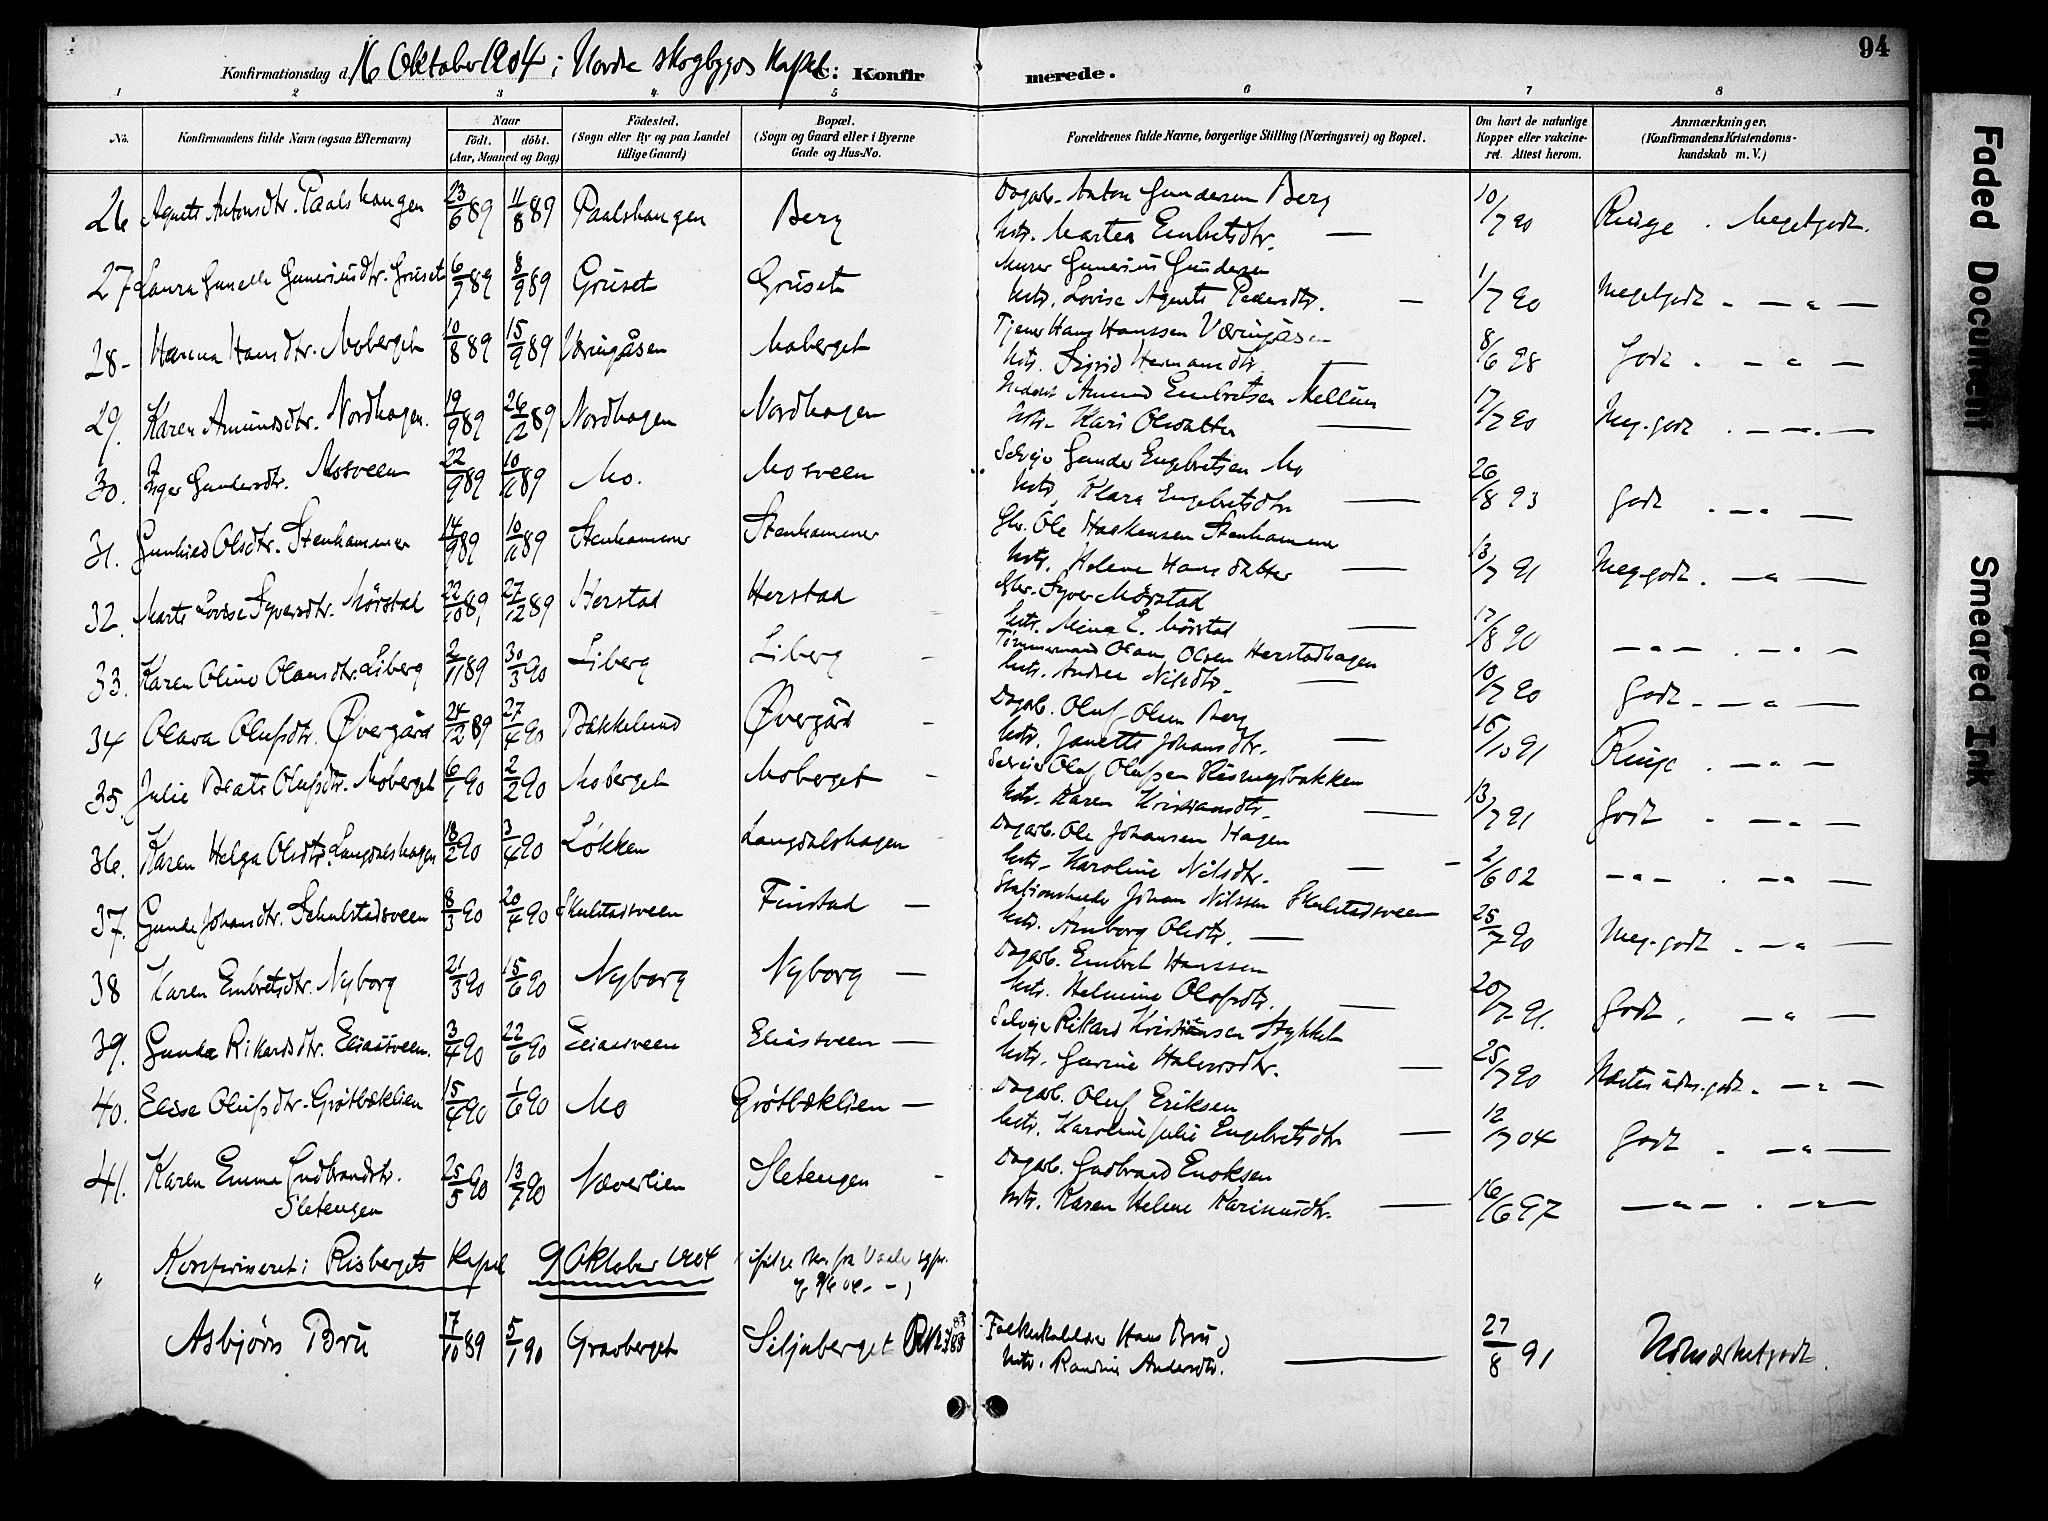 Konfirmationsdag d. 16 Oktober 1904 i Nordre skogbygds Kapel C: Konfirmerede. 94
1 2 3 4 5 6 7 8
No. Konfirmandens fulde Navn (ogsaa Efternavn) Naar Födt. döbt. (Aar, Maaned og Dag) Födested. (Sogn eller By og paa Landet tillige Gaard) Bopæl. (Sogn og Gaard eller i Byerne Gade og Hus-No. Forældrenes fulde Navne, borgerlige Stilling (Næringsvei) og Bopæl. Om havt de naturlige Kopper eller vakcineret. Attest herom. Anmærkninger. (Konfirmandens Kristendomskundskab m. V.)
26 Agnete Antonsdtr. Paalshaugen 23/6 89 11/8 89 Paalshaugen Berg Dagarb. Anton Gundersen Berg 10/7 90 Meget godt.
Hstr. Martea Embretsdtr. —
27 Laura Gunelle Guneriusdtr. Gruset 6/7 89 8/9 89 Gruset Gruset Murer Gunerius Gundersen 1/7 90 Meget godt - — " —
Hstr. Lovise Agnete Pedersdtr. —
28- Hanna Hansdtr. Moberget 10/8 89 15/9 89 Væringåsen Moberget Tjener Hans Hanssen Væringåsen 8/6 98 Godt - — " —
Hstr. Sigrid Hermansdtr. —
29. Karen Amundsdtr. Nordhagen. 19/9 89 26/12 89 Nordhagen Nordhagen Amund Embretsen Mellum 17/7 90 Meg. godt . — " —
Hstr. Kari Olsdatter —
30. Inger Gundersdtr. Mosveen 22/9 89 10/11 89 Mo. Mosveen Selveier Gunder Engebretsen Mo 26/8 93 Godt . — " —
Hstr. Klara Engebretsdtr —
31. Gunhild Olsdtr. Stenhammer 14/9 89 10/11 89 Stenhammer Stenhammer Gbr. Ole Haakensen Stenhammer 13/7 91 Meg. godt . — " —
Hstr. Helene Hansdatter —
32. Marte Lovise Syversdtr. Mörstad 22/10 89 27/12 89 Herstad Herstad Gbr. Syver Mörstad 17/8 90 — " — . — " —
Hstr. Mina E. Mörstad —
33. Karen Oline Olausdtr. Liberg 2/11 89 30/3 90 Liberg Liberg Tømmermand Olaus Olsen Herstadhagen 10/7 90 Godt - — " —
Hstr. Andrea Nilsdtr. —
34 Olava Olufsdtr. Øvergård 24/12 89 27/4 90 Bækkelund Øvergård Dagarb. Oluf Olsen Berg 15/10 91 . — " —
Hstr. Janette Johansdtr. —
35. Julie Beate Olufsdtr. Moberget 6/1 90 2/2 90 Moberget Moberget Selveier Oluf Olufsen 13/7 91 Godt - — " —
Hstr. Karen Kristiansdtr. —
36. Karen Helga Olsdtr. Langdalshagen 18/2 90 3/4 90 Løkken Langdalshagen Dagarb. Ole Johansen Hagen 2/6 02 — " — . — " —
Hstr. Karoline Nilsdtr. —
37. Gunda Johansdtr. Schulstadsveen 8/3 90 20/4 90 Skulstadsveen Finstad — Johan Nilssen Skulstadsveen 25/7 90 Meg. godt - — " —
Hstr. Amborg Olsdtr. —
38 Karen Embretsdtr. Nyborg 21/3 90 15/6 90 Nyborg Nyborg — Dagarb. Embret Hanssen 20/7 91. Godt . — " —
Hstr. Helmine Olofsdtr. —
39. Gunda Rikardsdtr. Eliasveen. 3/4 90 22/6 90 Eliasveen Eliasveen — Selveier Rikard Kristiansen Stykket 25/7 90 Næsten udm. godt - — " —
Hstr. Gurine Halvorsdtr. —
40. Elise Olufsdtr. Grötbæklien 15/4 90 1/6 90 Mo Grötbæklien — Dagarb. Oluf Eriksen 12/7 04 Godt - — " —
Hstr. Karoline Julie Engebretsdtr —
41. Karen Emma Gudbrandsdtr. Sletengen 25/5 90 13/7 90 Næverlien Sletengen - Dagarb. Gudbrand Enoksen 16/6 97 — " — . — " —
Hstr. Karen Helene Karinusdtr. —
" Konfirmeret i Risbergets Kapel 9 Oktober 1904 (ifølge fra Vaaler
Asbjörn Bru 17/10 89 5/1 90 Gravberget Siljuberget Hans Bru 27/8 91 Udmærket godt.
Hstr. Randine Andersdtr. —
Faded Document
Smeared Ink